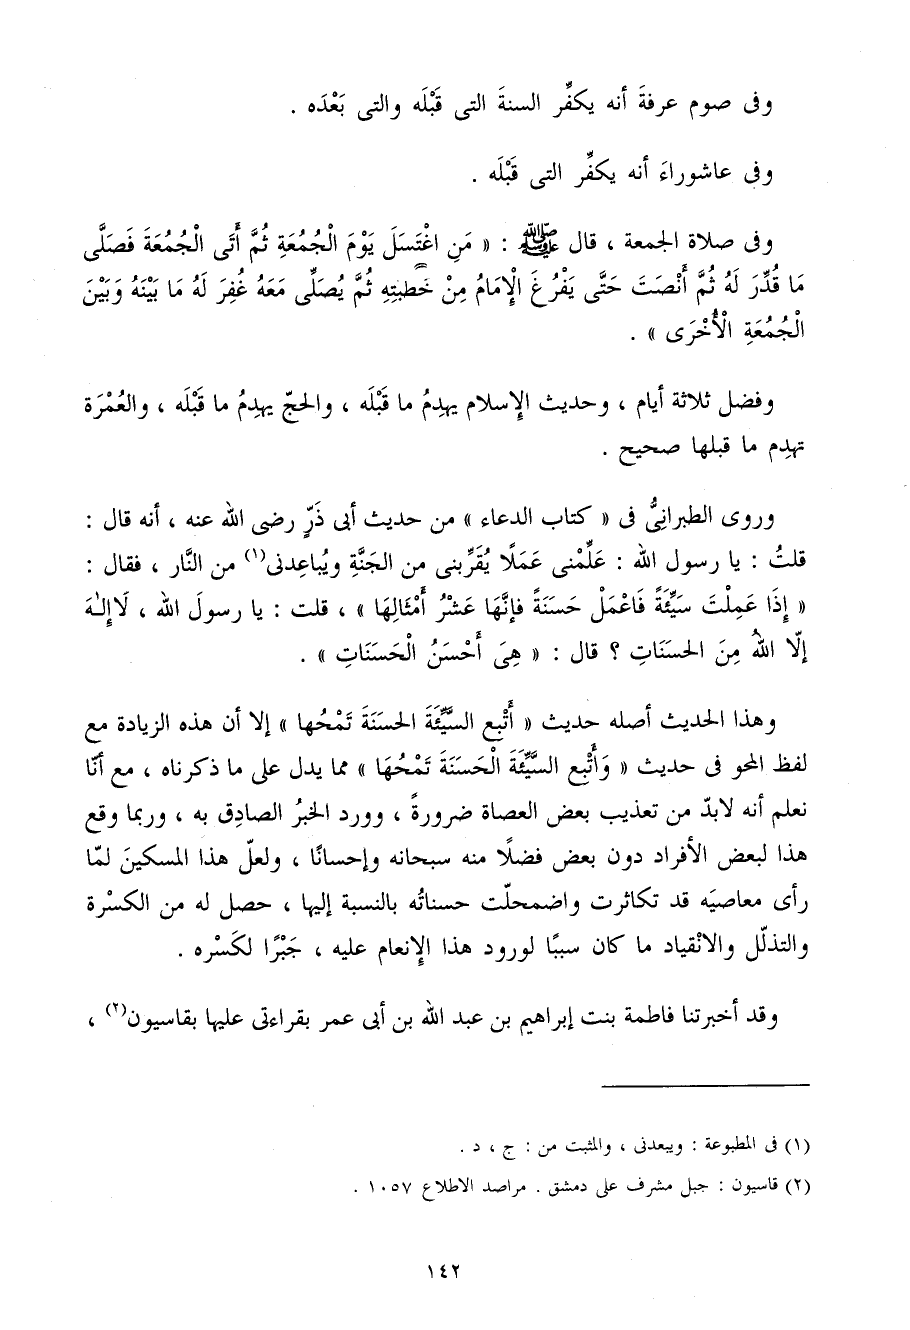 وفى صوم عرفةَ أنه يكفِّر السنةَ التى قَبْلَه والتى بَعْدَه .
وفى عاشوراءَ أنه يكفِّر التى قَبْلَه .
وفى صلاة الجمعة ، قال ﷺ : « مَنِ اغْتَسَلَ يَوْمَ الْجُمُعَةِ ثُمَّ أَتَى الْجُمُعَةَ فَصَلَّى
مَا قُدِّرَ لَهُ ثُمَّ أَنْصَتَ حَتَّى يَفْرُغَ الْإمَامُ مِنْ خُطبتِهِ ثُمَّ يُصَلِّى مَعَهُ غُفِرَ لَهُ مَا بَيْنَهُ وَبَيْنَ
الْجُمُعَةِ الْأُخْرَى » .
وفضل ثلاثة أيام ، وحديث الإسلام يهدِمُ ما قَبْلَه ، والحجّ يهدِمُ ما قَبْلَه ، والعُمْرَة
تهدِم ما قبلها صحيح .
وروى الطبرانِىُّ فى « كتاب الدعاء » من حديث أبى ذَرٍّ رضى الله عنه ، أنه قال :
قلتُ : يا رسول الله : عَلِّمْنى عَمَلًا يُقَرِّبنى من الجَنَّةِ ويُباعِدنى(١) من النَّار ، فقال :
« إِذَا عَمِلْتَ سَيِّئَةً فَاعْمَلْ حَسَنَةً فإنَّهَا عَشْرُ أَمْثَالِهَا » ، قلت : يا رسولَ الله ، لَا إِلـٰهَ
إلّا اللهُ مِنَ الحسَنَاتِ ؟ قال : « هِىَ أَحْسَنُ الْحَسَنَاتِ » .
وهذا الحديث أصله حديث « أَتْبِع السَّيِّئَةَ الحسَنَةَ تَمْحُها » إلا أن هذه الزيادة مع
لفظ المحو فى حديث « وَأَتْبِع السَّيِّئَةَ الْحَسَنَةَ تَمْحُهَا » مما يدل على ما ذكرناه ، مع أنّا
نعلم أنه لابدّ من تعذيب بعض العصاة ضرورةً ، وورد الخبرُ الصادِق به ، وربما وقع
هذا لبعض الأفراد دون بعض فضلًا منه سبحانه وإحسانًا ، ولعلّ هذا المسكينَ لمّا
رأى معاصيَه قد تكاثرت واضمحلّت حسناتُه بالنسبة إليها ، حصل له من الكسْرة
والتذلّل والانْقياد ما كان سببًا لورود هذا الإنعام عليه ، جَبْرًا لكَسْره .
وقد أخبرتنا فاطمة بنت إبراهيم بن عبد الله بن أبى عمر بقراءتى عليها بقاسيون(٢) ،
(١) فى المطبوعة : ويبعدنى ، والمثبت من : ج ، د .
(٢) قاسيون : جبل مشرف على دمشق . مراصد الاطلاع ١٠٥٧ .
١٤٢